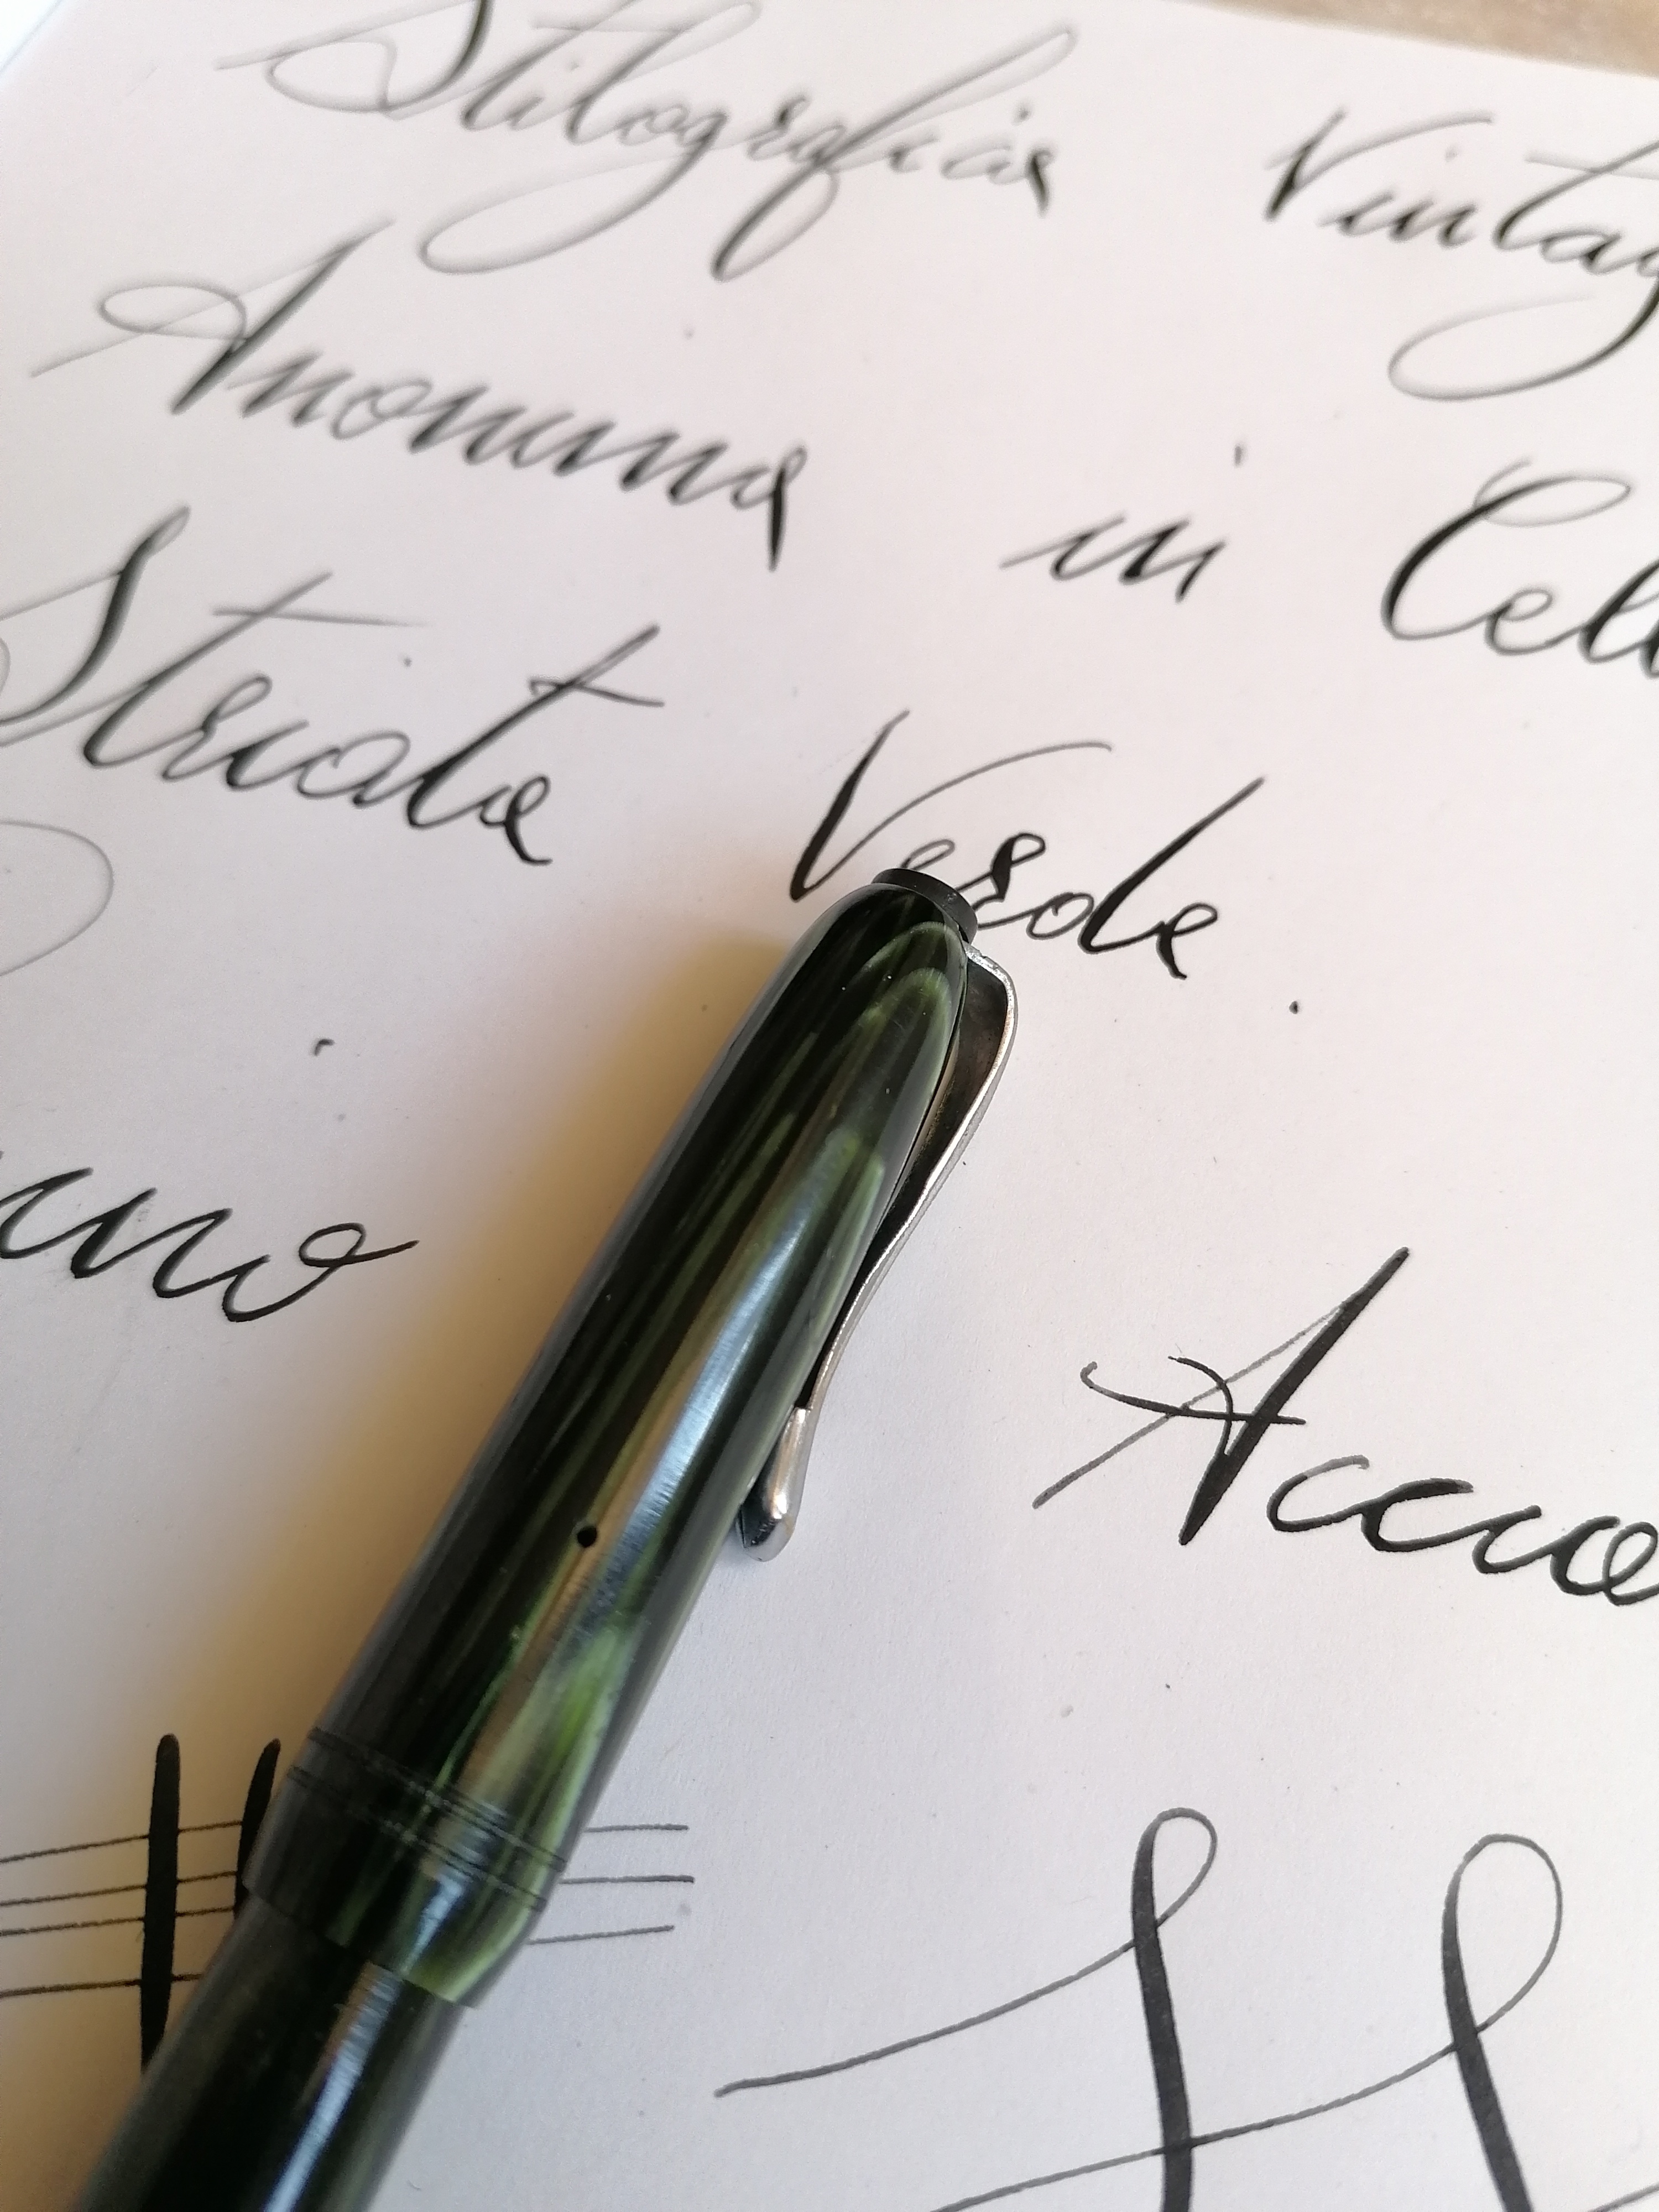 Stilografica Vintag
Anonima in Cell
Striata Verde.
ino Accia